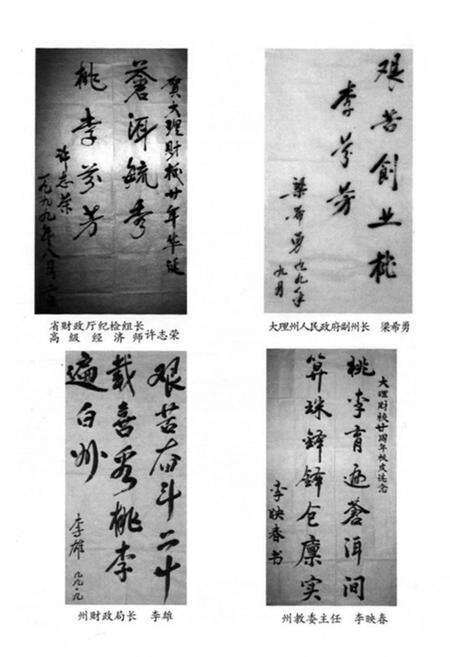 贺大理财校廿年华诞
苍洱毓秀
桃李芬芳
许志荣
一九九九年八月
省财政厅纪检组长
高级经济师许志荣
艰苦创业桃
李芬芳
梁希勇 九九年
九月
大理州人民政府副州长 梁希勇
艰苦奋斗二十
载喜看桃李
遍白州
李雄 九九.九
州财政局长 李雄
大理财校廿周年校庆志念
桃李育遍苍洱间
算珠铎铎仓廪实
李映春书
州教委主任 李映春